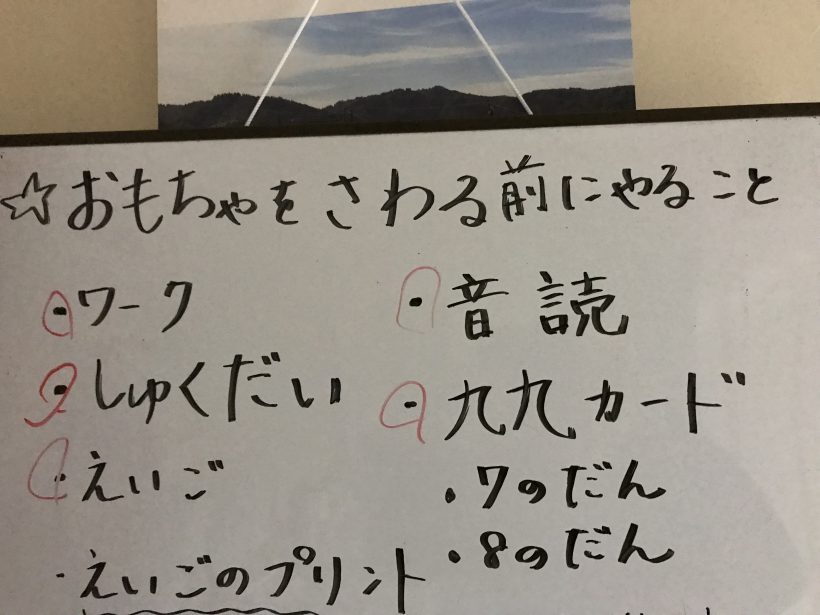 ☆おもちゃをさわる前にやること
・ワーク
・しゅくだい
・えいご
・えいごのプリント
・音読
・九九カード
・7のだん
・8のだん